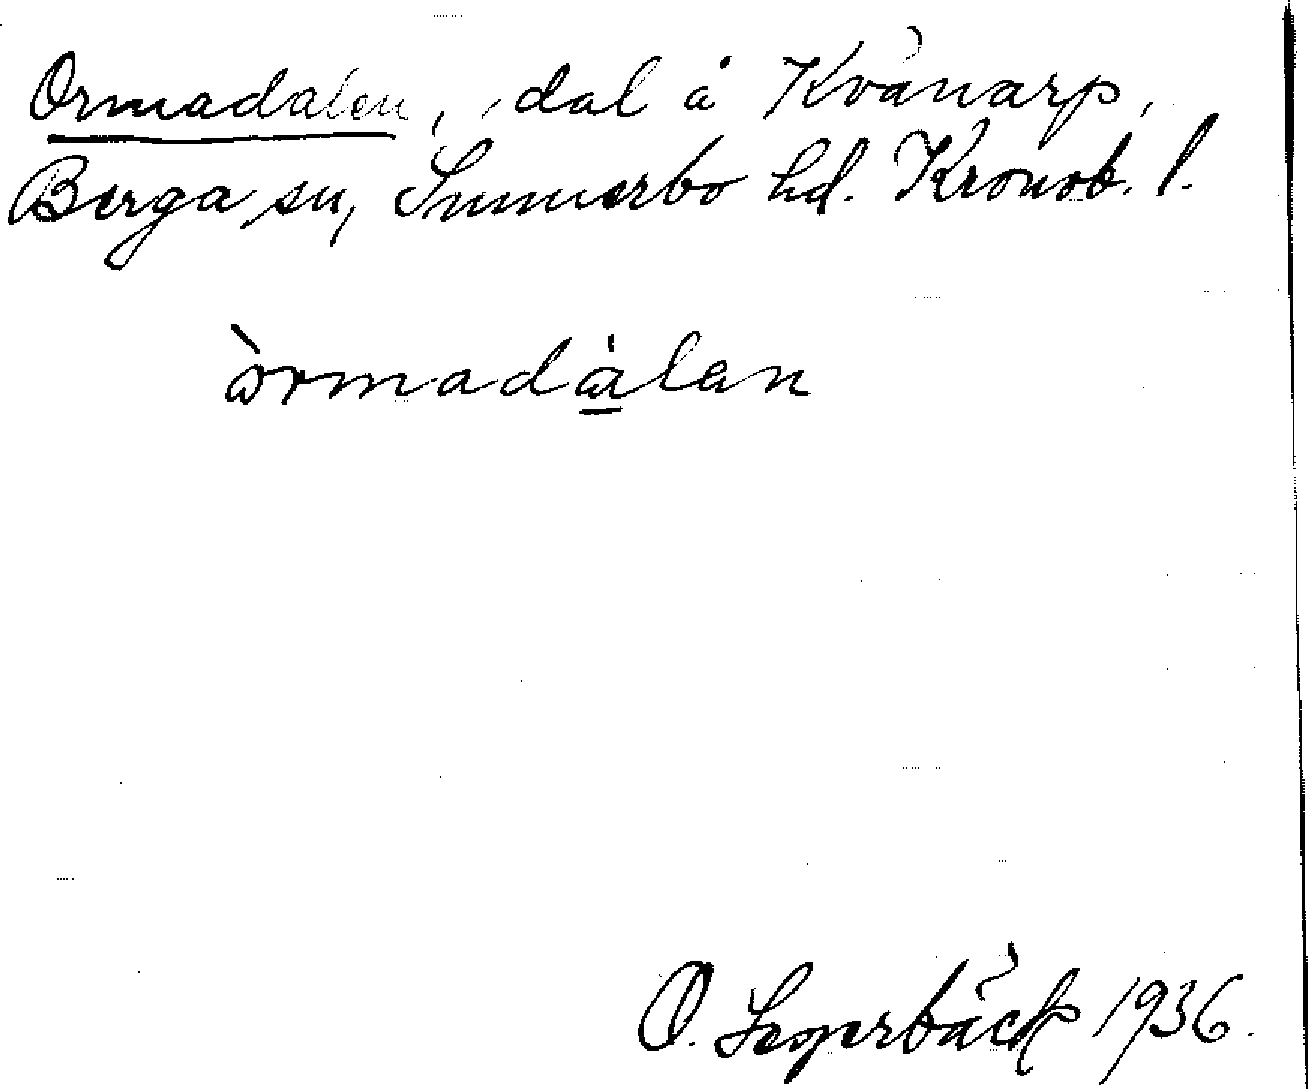 Ormadalen, dal å Kvänarp,
Berga sn, Sunnerbo hd. Kronob. l.
òrmadàlan
O. Segerbäck 1936.